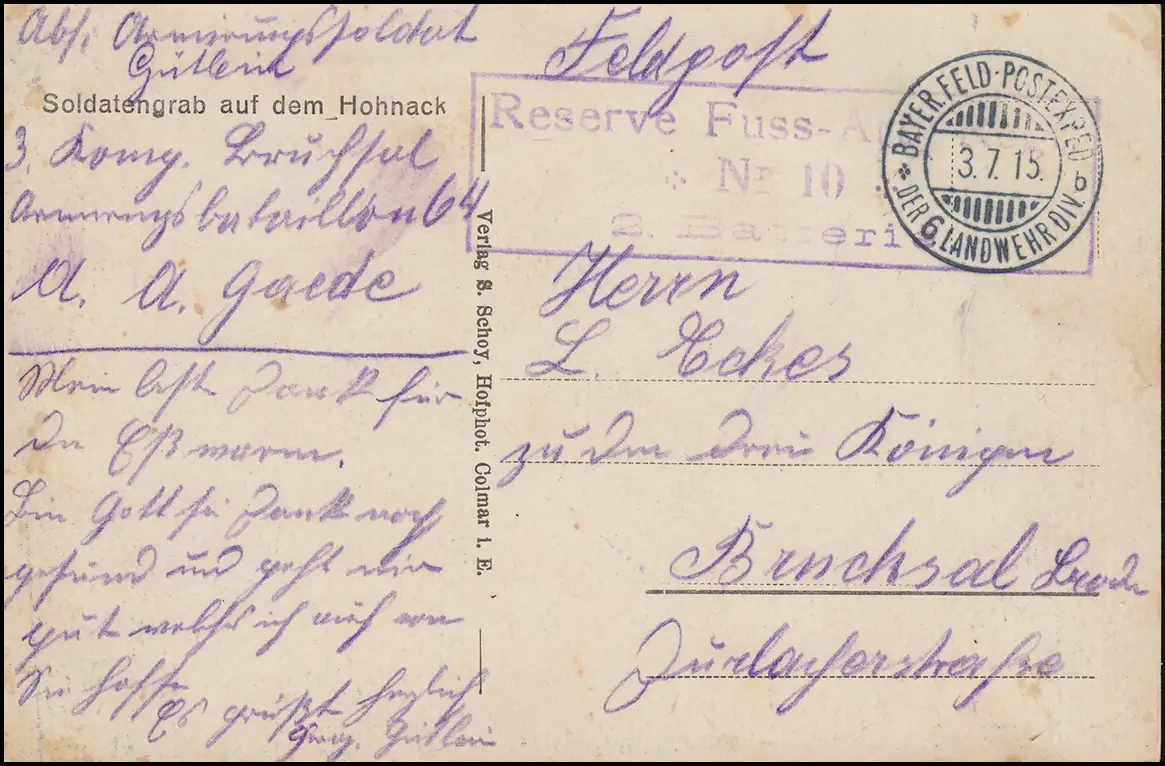 Abs. Armierungssoldat
Gütlein
Soldatengrab auf dem Hohnack
3. Komp. Bruchsal
Armierungsbataillon 64
A. A. Gaede
Mein beste Dank für
die Eßwaren.
Bin Gott sei Dank noch
gesund und geht mir
gut welches ich auch von
Sie hoffe
Es grüßt herzlich
Gütlein
Verlag S. Schoy, Hofphot. Colmar i. E.
Feldpost
Reserve Fuss-
Nr 10
2. Batterie
BAYER. FELD-POSTEXPED.
3.7.15.
b
DER 6 LANDWEHR DIV.
Herrn
L. Eckes
zu den drei Königen
Bruchsal Baden
Durlacherstraße